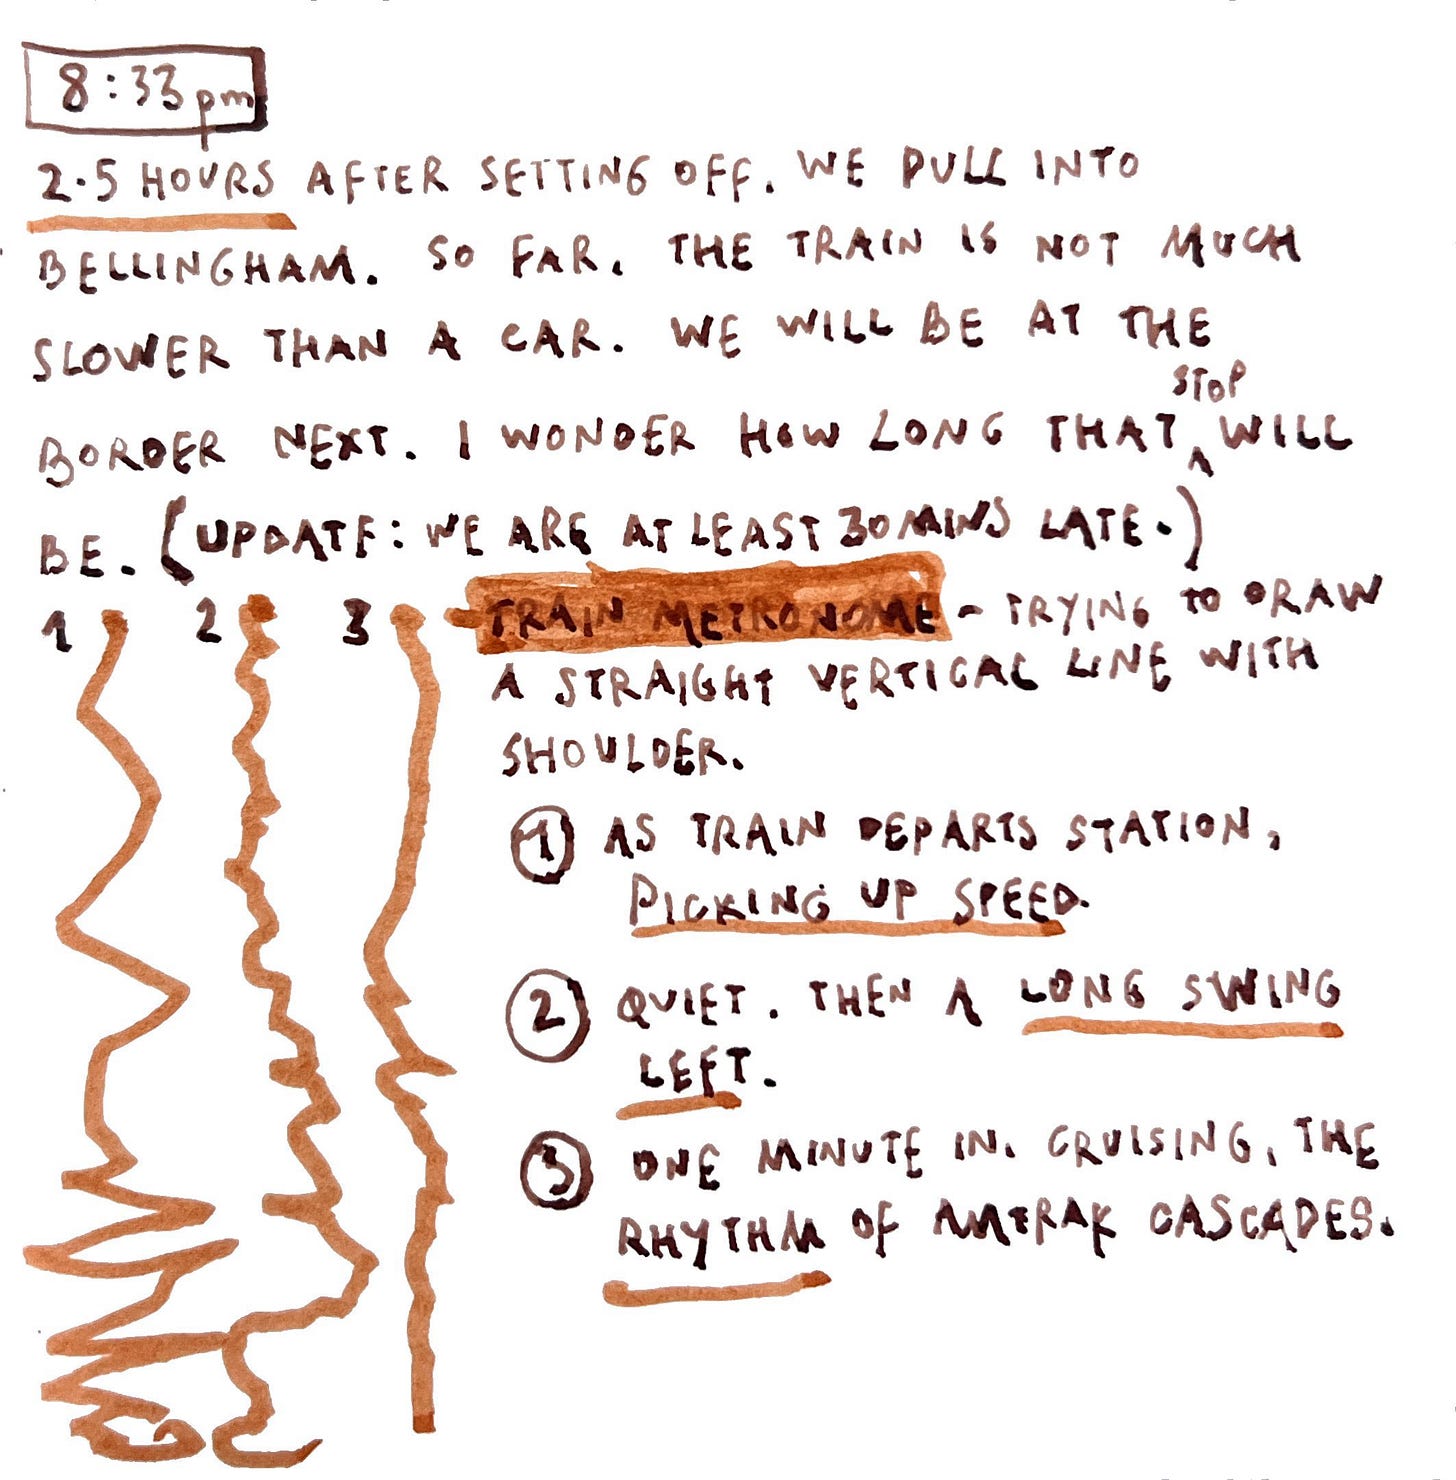 8:33pm
2.5 HOURS AFTER SETTING OFF. WE PULL INTO
BELLINGHAM. SO FAR, THE TRAIN IS NOT MUCH
SLOWER THAN A CAR. WE WILL BE AT THE
BORDER NEXT. I WONDER HOW LONG THAT STOP WILL
BE. (UPDATE: WE ARE AT LEAST 30 MINS LATE.)
1 2 3 TRAIN METRONOME - TRYING TO DRAW
A STRAIGHT VERTICAL LINE WITH
SHOULDER.
1 AS TRAIN DEPARTS STATION,
PICKING UP SPEED.
2 QUIET. THEN A LONG SWING
LEFT.
3 ONE MINUTE IN. CRUISING, THE
RHYTHM OF AMTRAK CASCADES.